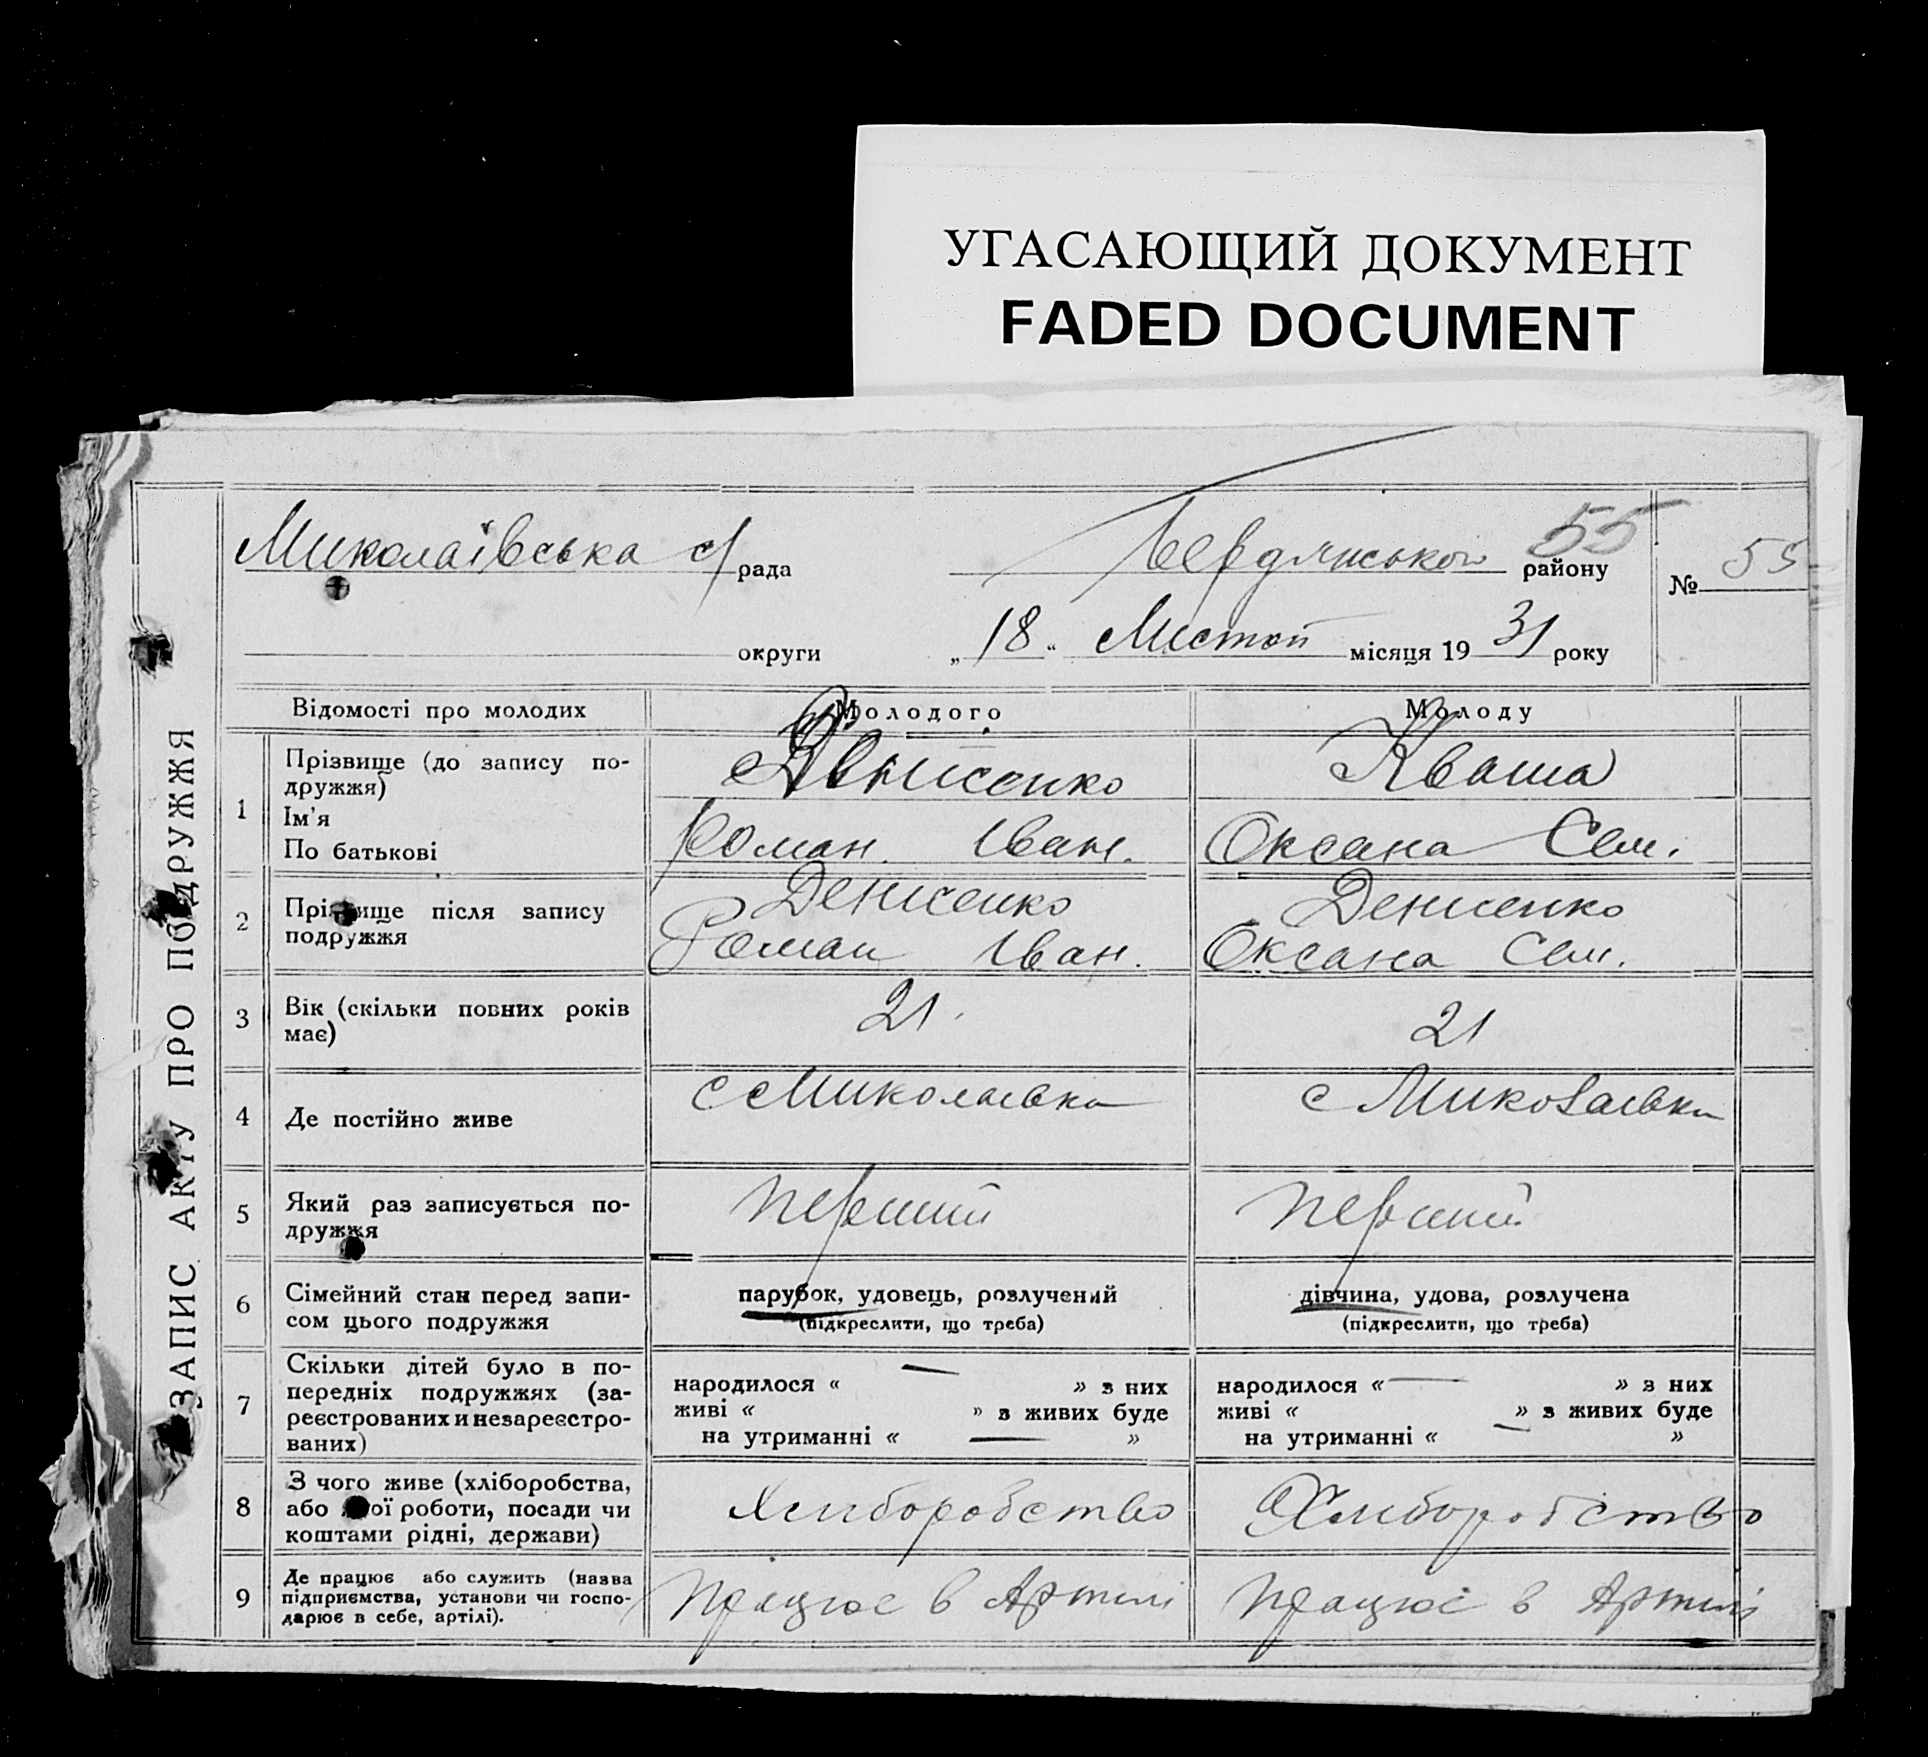 УГАСАЮЩИЙ ДОКУМЕНТ
FADED DOCUMENT
ЗАПИС АКТУ ПРО ПОДРУЖЖЯ
Миколаївська с/рада Бердянського району 55
№ 55
округи „18“ Листоп місяця 1931 року
Відомості про молодих Молодого Молоду
1 Прізвище (до запису по-
дружжя)
Ім'я
По батькові
Денисенко
Роман. Іван.
Кваша
Оксана Сем.
2 Прізвище після запису
подружжя
Денисенко
Роман Іван.
Денисенко
Оксана Сем.
3 Вік (скільки повних років
має)
21.
21
4 Де постійно живе
с Миколаївка
с Миколаївка
5 Який раз записується по-
дружжя
перший
перший
6 Сімейний стан перед запи-
сом цього подружжя
парубок, удовець, розлучений
(підкреслити, що треба)
дівчина, удова, розлучена
(підкреслити, що треба)
7 Скільки дітей було в по-
передніх подружжях (за-
реєстрованих и незареєстро-
ваних)
народилося « — » з них
живі « » з живих буде
на утриманні « — »
народилося « — » з них
живі « — » з живих буде
на утриманні « »
8 З чого живе (хліборобства,
або якої роботи, посади чи
коштами рідні, держави)
Хлиборобство
Хлиборобство
9 Де працює або служить (назва
підприємства, установи чи госпо-
дарює в себе, артілі).
працює в Артилі
працює в Артилі